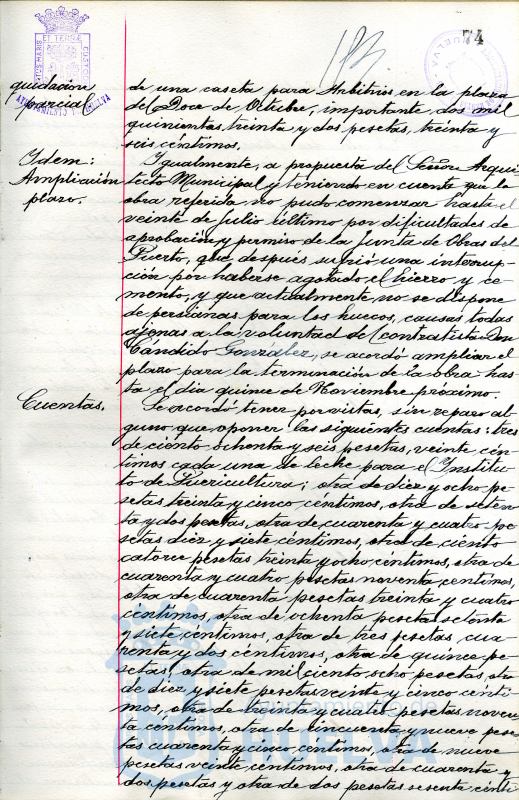 74
PORTUS MARIS ET TERRAE CUSTODIA
AYUNTAMIENTO DE HUELVA
quidación
parcial
de una caseta para Arbitrios en la plaza
del Doce de Octubre, importante, dos mil
quinientas treinta y dos pesetas, treinta y
seis céntimos.
Idem:
Ampliación
plazo.
Igualmente, a propuesta del Señor Arqui-
tecto Municipal y teniendo en cuenta que la
obra referida no pudo comenzar hasta el
veinte de Julio último por dificultades de
aprobación y permiso de la Junta de Obras del
Puerto, que después sufrió una interrup-
ción por haberse agotado el hierro y ce-
mento, y que actualmente no se dispone
de persianas para los huecos, causas todas
ajenas a la voluntad del contratista Don
Cándido González, se acordó ampliar el
plazo para la terminación de la obra has-
ta el día quince de Noviembre próximo.
Cuentas.
Se acordó tener por vistas, sin reparo al-
guno que oponer las siguientes cuentas: tres
de ciento ochenta y seis pesetas, veinte cén-
timos cada una de leche para el Institu-
to de Puericultura; otra de diez y ocho pe-
setas treinta y cinco céntimos, otra de seten-
ta y dos pesetas, otra de cuarenta y cuatro pe-
setas diez y siete céntimos, otra de ciento
catorce pesetas treinta y ocho céntimos, otra de
cuarenta y cuatro pesetas noventa céntimos,
otra de cuarenta pesetas treinta y cuatro
céntimos, otra de ochenta pesetas setenta
y siete céntimos, otra de tres pesetas, cua-
renta y dos céntimos, otra de quince pe-
setas, otra de mil ciento ocho pesetas, otra
de diez y siete pesetas veinte y cinco cénti-
mos, otra de treinta y cuatro pesetas noven-
ta céntimos, otra de cincuenta y nueve pese-
tas cuarenta y cinco céntimos, otra de nueve
pesetas veinte céntimos, otra de cuarenta y
dos pesetas y otra de dos pesetas sesenta cénti-
Ayuntamiento de
HUELVA